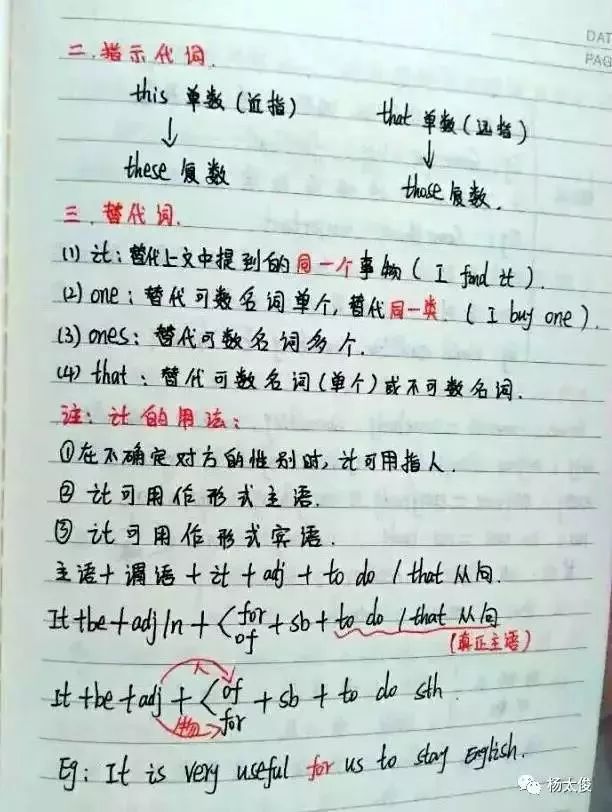 DAT
PAG
二.指示代词.
this 单数(近指) that 单数(远指)
↓ ↓
these 复数 those 复数.
三.替代词.
(1) it: 替代上文中提到的同一个事物 ( I find it ).
(2) one: 替代可数名词单个, 替代同一类. ( I buy one ).
(3) ones: 替代可数名词多个.
(4) that: 替代可数名词(单个)或不可数名词.
注: it 的用法:
①在不确定对方的性别时, it可用指人.
② it 可用作形式主语.
③ it 可用作形式宾语.
主语+谓语+it+adj+to do / that 从句.
It+be+adj/n+<for/of+sb+to do / that 从句
(真正主语)
人
It+be+adj+<of/for+sb+to do sth.
物
Eg: It is very useful for us to stay English.
杨太俊